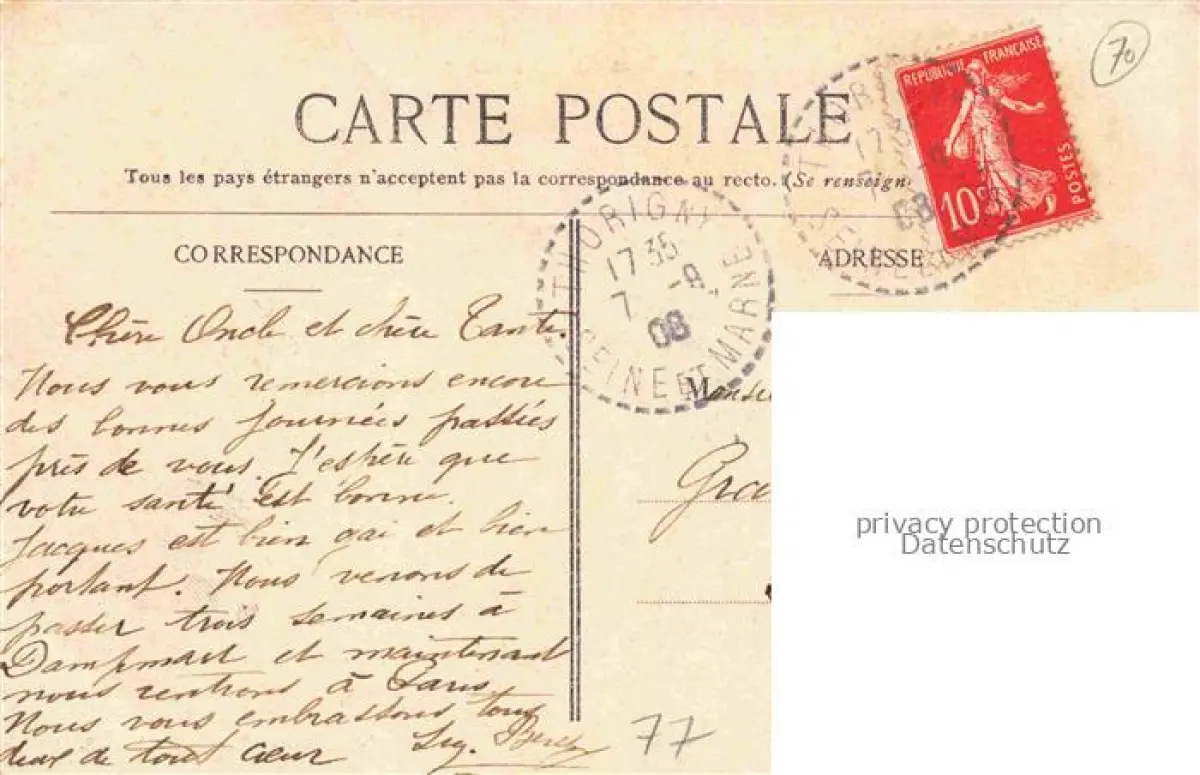 70
RÉPUBLIQUE FRANÇAISE
10c
POSTES
CARTE POSTALE
Tous les pays étrangers n'acceptent pas la correspondance au recto. (Se renseign
THORIGNY
17 35
7 -9
08
SEINE ET MARNE
THOR
17
08
CORRESPONDANCE
ADRESSE
Chère Oncle et chère Tante.
Nous vous remercions encore
des bonnes journées passées
près de vous. J'espère que
votre santé est bonne.
Jacques est bien gai et bien
portant. Nous venons de
passer trois semaines à
Dampmart et maintenant
nous rentrons à Paris
Nous vous embrassons tous
deux de tout cœur
Monsie
Gra
77
privacy protection
Datenschutz